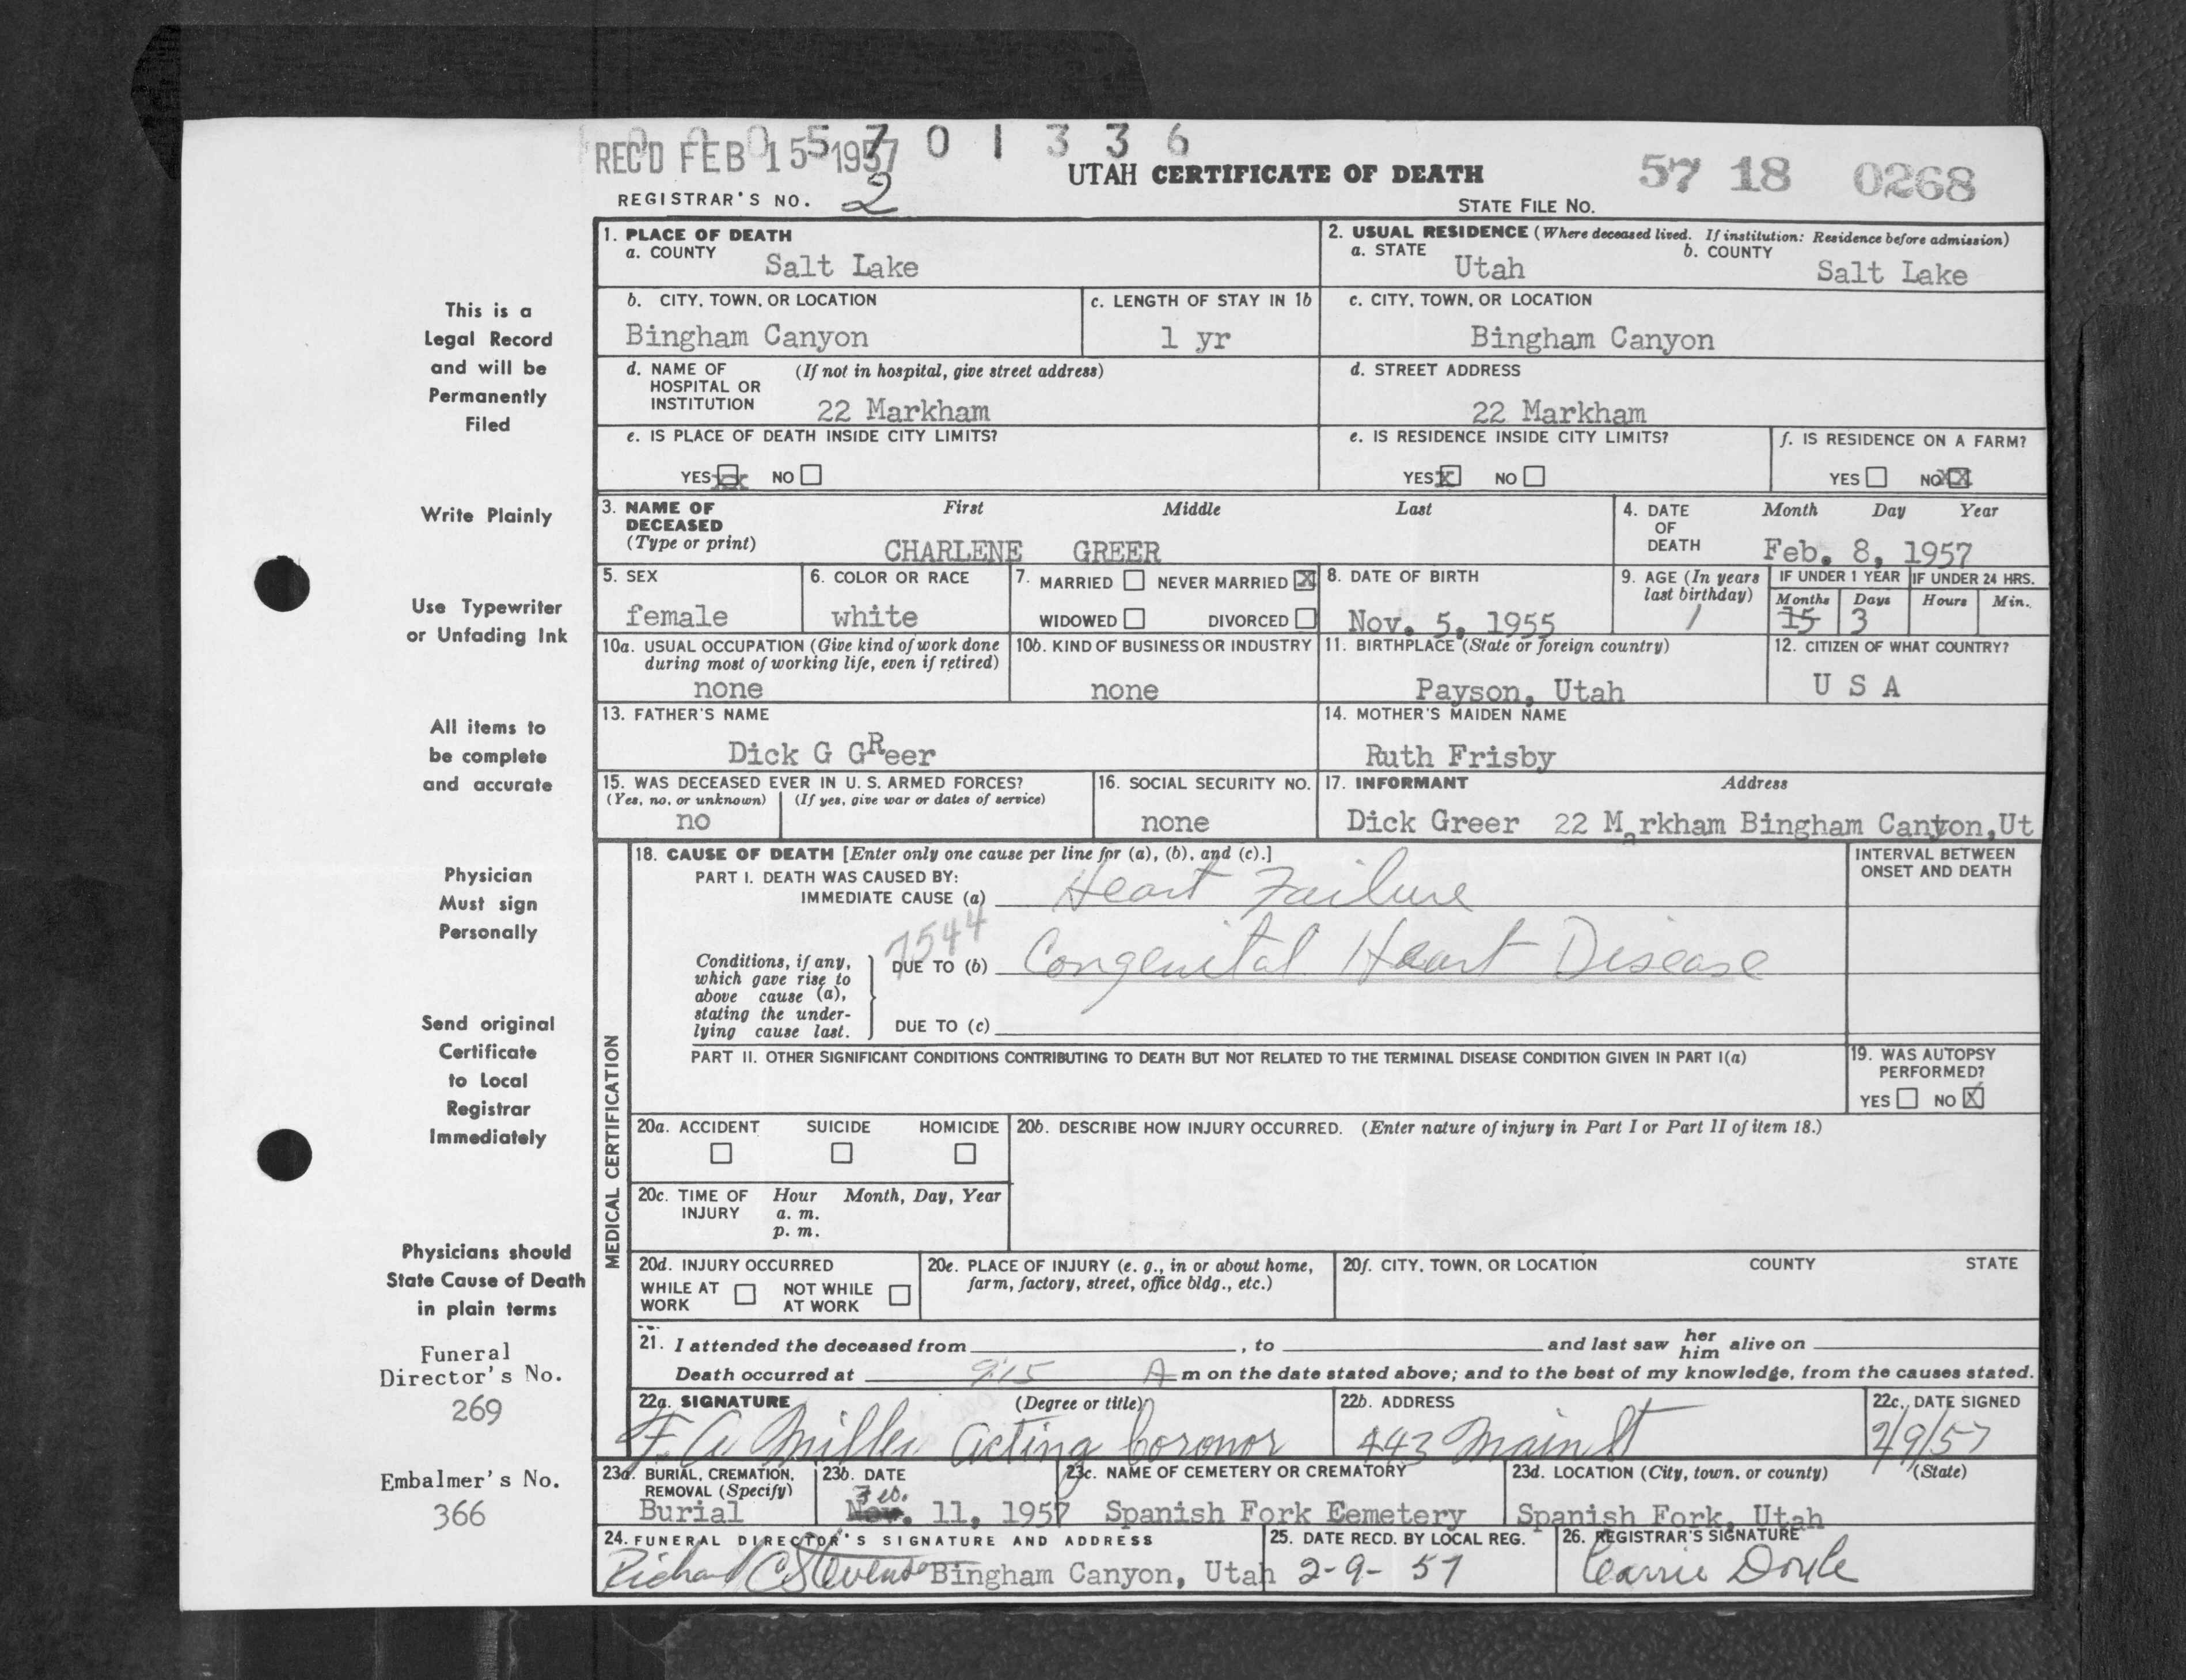 REC'D FEB 15 1957
0 0 0 5 7 0 1 3 3 6
UTAH CERTIFICATE OF DEATH
57 18 0268
REGISTRAR'S NO. 2
STATE FILE NO.
1. PLACE OF DEATH
a. COUNTY
Salt Lake
2. USUAL RESIDENCE (Where deceased lived. If institution: Residence before admission)
a. STATE
Utah
b. COUNTY
Salt Lake
b. CITY, TOWN, OR LOCATION
Bingham Canyon
c. LENGTH OF STAY IN 1b
1 yr
c. CITY, TOWN, OR LOCATION
Bingham Canyon
d. NAME OF HOSPITAL OR INSTITUTION
(If not in hospital, give street address)
22 Markham
d. STREET ADDRESS
22 Markham
e. IS PLACE OF DEATH INSIDE CITY LIMITS?
YES xx NO
e. IS RESIDENCE INSIDE CITY LIMITS?
YES X NO
f. IS RESIDENCE ON A FARM?
YES NO XX
3. NAME OF DECEASED
(Type or print)
First Middle Last
CHARLENE GREER
4. DATE OF DEATH
Month Day Year
Feb. 8, 1957
5. SEX
female
6. COLOR OR RACE
white
7. MARRIED NEVER MARRIED X
WIDOWED DIVORCED
8. DATE OF BIRTH
Nov. 5, 1955
9. AGE (In years last birthday)
1
IF UNDER 1 YEAR
Months Days
15 3
IF UNDER 24 HRS.
Hours Min.
10a. USUAL OCCUPATION (Give kind of work done during most of working life, even if retired)
none
10b. KIND OF BUSINESS OR INDUSTRY
none
11. BIRTHPLACE (State or foreign country)
Payson, Utah
12. CITIZEN OF WHAT COUNTRY?
U S A
13. FATHER'S NAME
Dick G GReer
14. MOTHER'S MAIDEN NAME
Ruth Frisby
15. WAS DECEASED EVER IN U. S. ARMED FORCES?
(Yes, no, or unknown) (If yes, give war or dates of service)
no
16. SOCIAL SECURITY NO.
none
17. INFORMANT Address
Dick Greer 22 Markham Bingham Canyon,Ut
MEDICAL CERTIFICATION
18. CAUSE OF DEATH [Enter only one cause per line for (a), (b), and (c).]
PART I. DEATH WAS CAUSED BY:
IMMEDIATE CAUSE (a) Heart Failure
7544
Conditions, if any, which gave rise to above cause (a), stating the underlying cause last.
DUE TO (b) Congenital Heart Disease
DUE TO (c)
INTERVAL BETWEEN ONSET AND DEATH
PART II. OTHER SIGNIFICANT CONDITIONS CONTRIBUTING TO DEATH BUT NOT RELATED TO THE TERMINAL DISEASE CONDITION GIVEN IN PART I(a)
19. WAS AUTOPSY PERFORMED?
YES NO X
20a. ACCIDENT SUICIDE HOMICIDE
20b. DESCRIBE HOW INJURY OCCURRED. (Enter nature of injury in Part I or Part II of item 18.)
20c. TIME OF INJURY
Hour Month, Day, Year
a. m.
p. m.
20d. INJURY OCCURRED
WHILE AT WORK NOT WHILE AT WORK
20e. PLACE OF INJURY (e. g., in or about home, farm, factory, street, office bldg., etc.)
20f. CITY, TOWN, OR LOCATION COUNTY STATE
21. I attended the deceased from , to and last saw her him alive on
Death occurred at 9:15 A m on the date stated above; and to the best of my knowledge, from the causes stated.
22a. SIGNATURE (Degree or title)
F. A Miller Acting Coronor
22b. ADDRESS
443 Main St
22c. DATE SIGNED
2/9/57
23a. BURIAL, CREMATION, REMOVAL (Specify)
Burial
23b. DATE
Feb.
Nov. 11, 1957
23c. NAME OF CEMETERY OR CREMATORY
Spanish Fork Eemetery
23d. LOCATION (City, town, or county) (State)
Spanish Fork, Utah
24. FUNERAL DIRECTOR'S SIGNATURE AND ADDRESS
Richard C Stevens Bingham Canyon, Utah
25. DATE RECD. BY LOCAL REG.
2-9-57
26. REGISTRAR'S SIGNATURE
Carrie Doyle
This is a
Legal Record
and will be
Permanently
Filed
Write Plainly
Use Typewriter
or Unfading Ink
All items to
be complete
and accurate
Physician
Must sign
Personally
Send original
Certificate
to Local
Registrar
Immediately
Physicians should
State Cause of Death
in plain terms
Funeral
Director's No.
269
Embalmer's No.
366